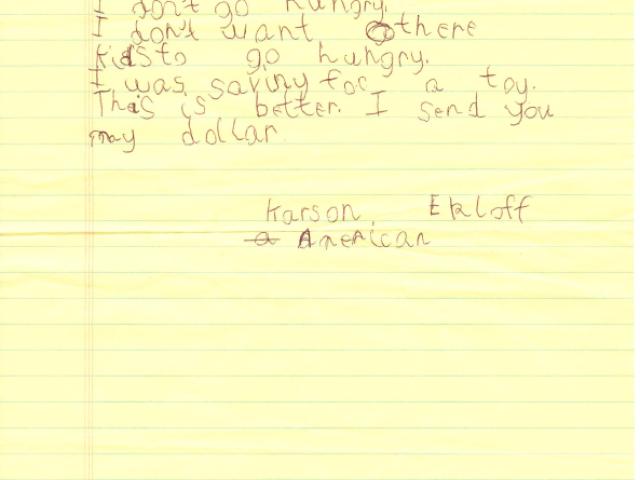 I don't go hungry.
I don't want othere
kids to go hungry.
I was saving for a toy.
This is better. I send you
my dollar
Karson Ekloff
a American